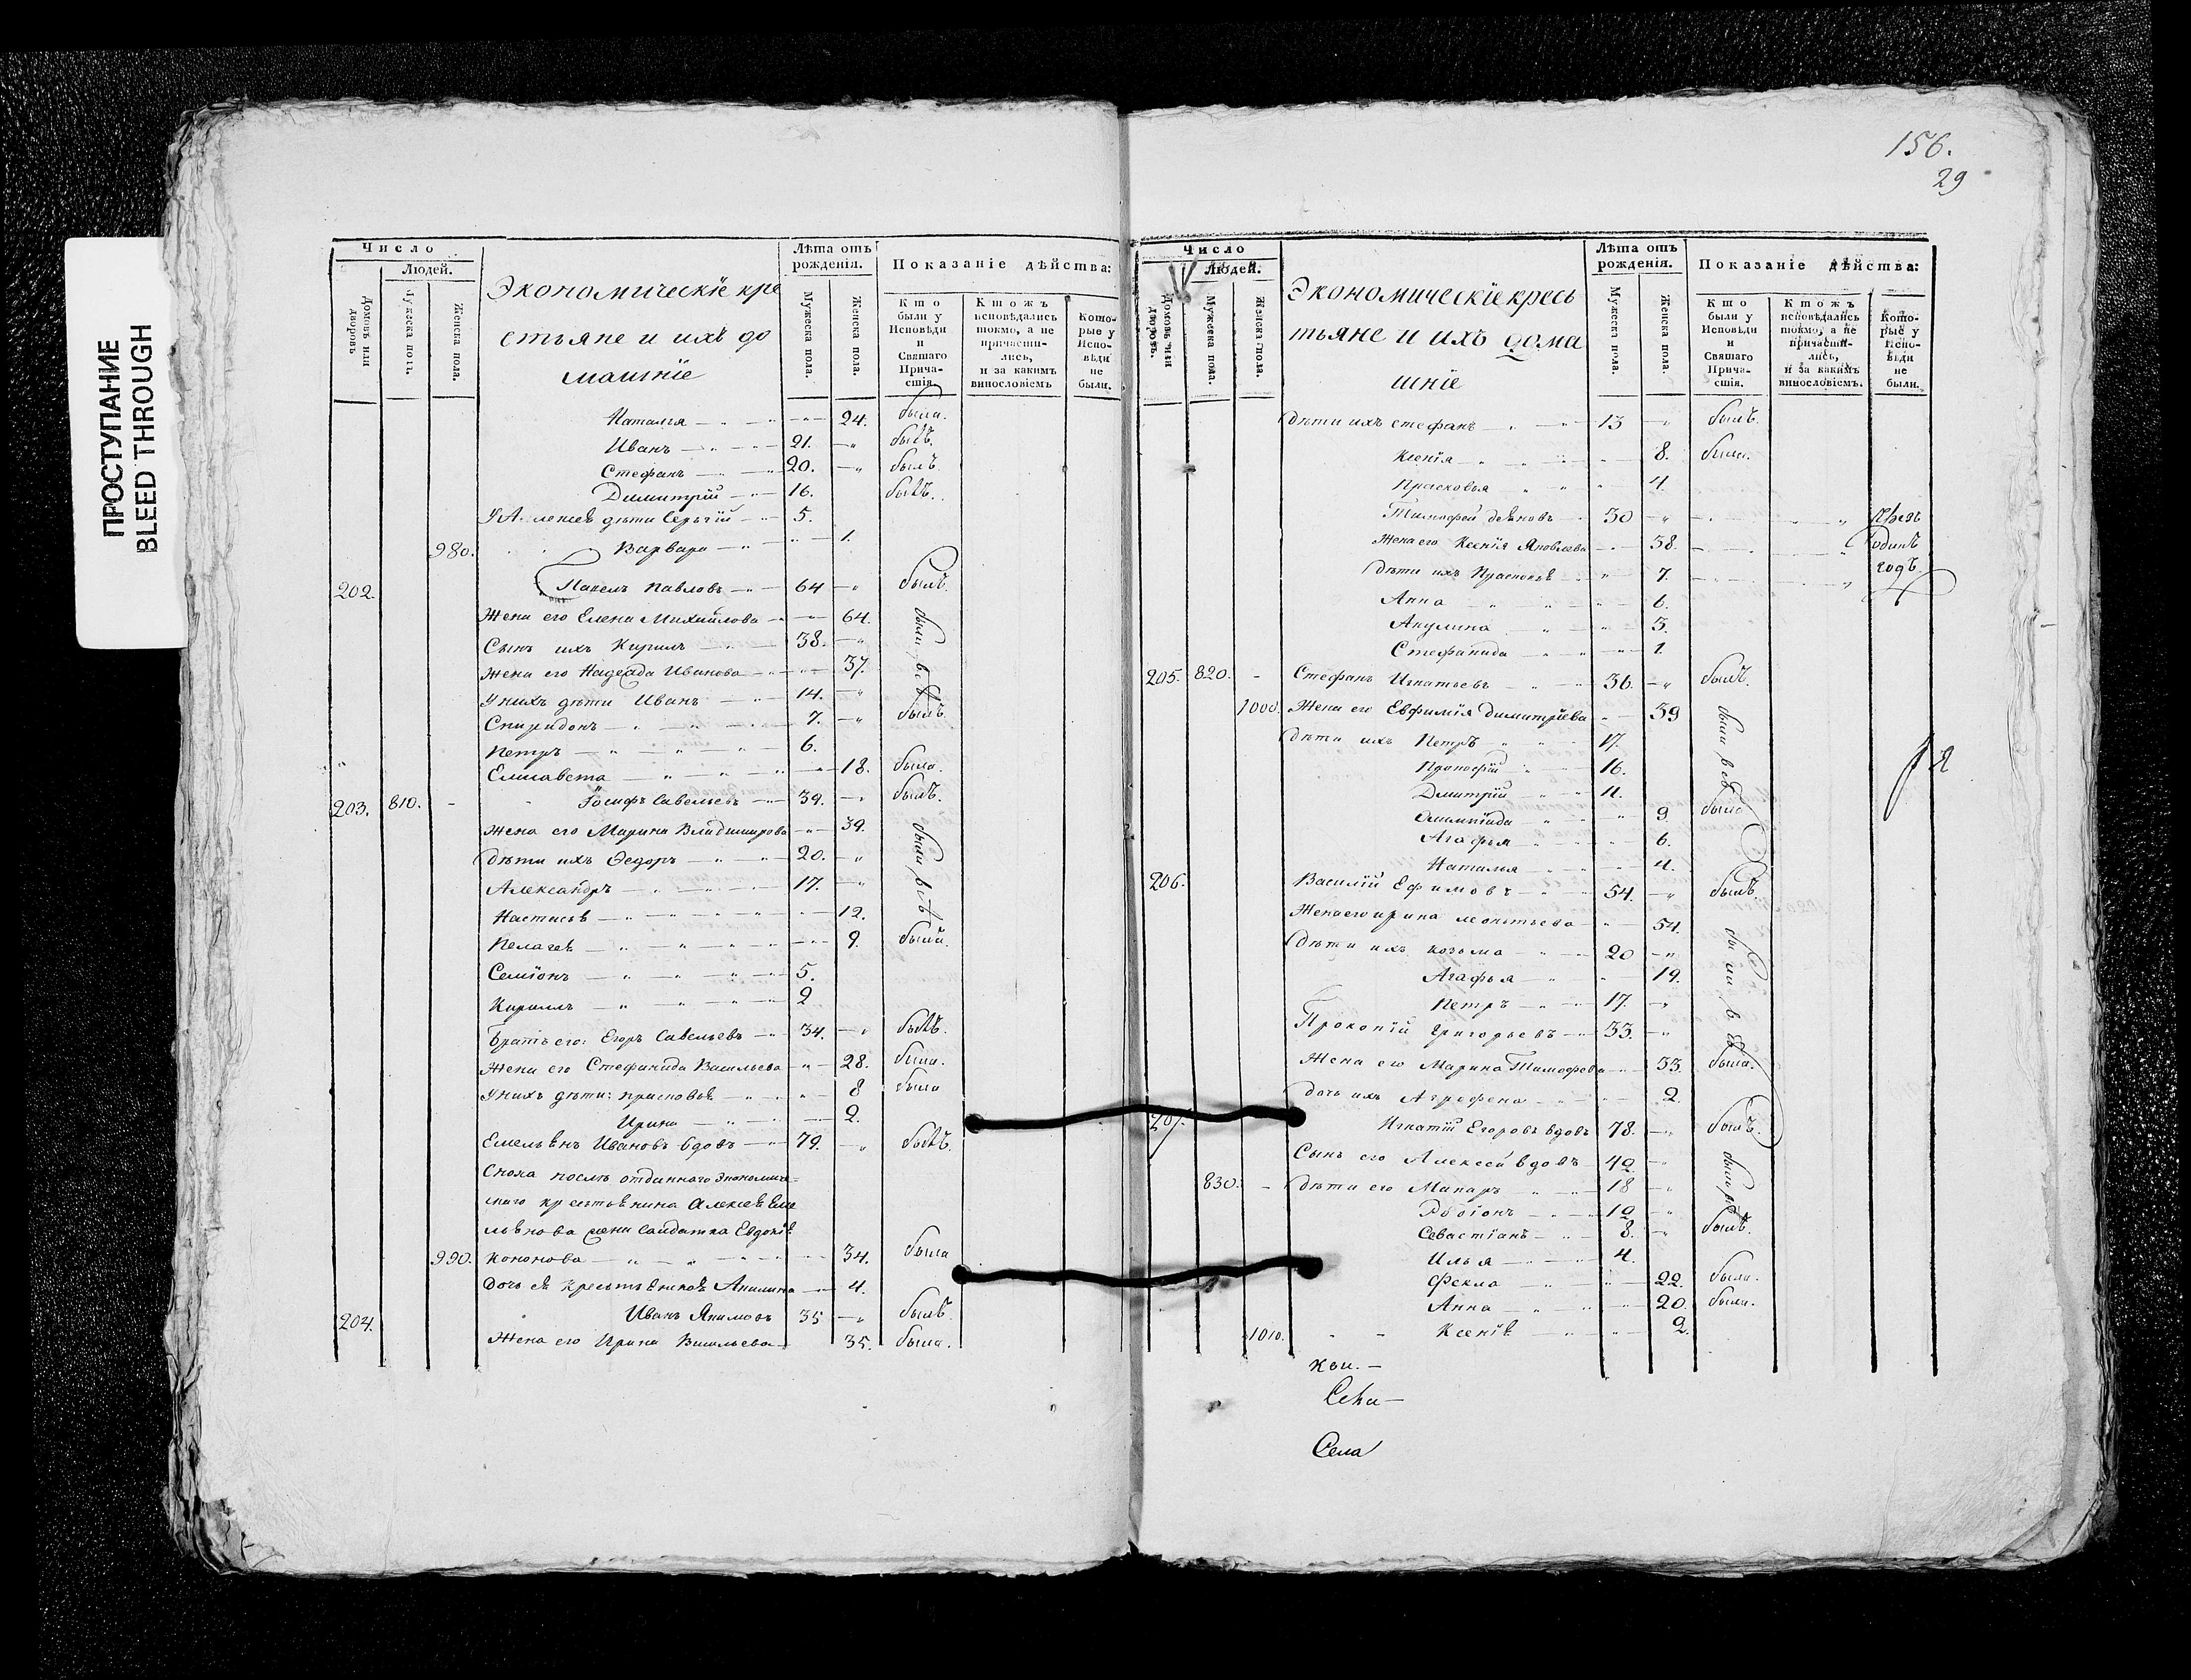 ПРОСТУПАНИЕ
BLEED THROUGH
Число
Людей.
Домовъ или дворовъ
Мужеска полъ.
Женска пола.
Экономическїе кре
стьяне и ихъ до
машнїе
Лѣта отъ рожденїя.
Мужеска пола.
Женска пола.
Показанїе дѣйства:
Кто были у Исповѣди и Святаго Прича- стїя.
Ктожъ исповѣдались токмо, а не причасти- лись, и за какимъ винословїемъ
Кото- рые у Испо- вѣди не были.
Наталья — 24. была.
Иванъ — 21. былъ.
Стефанъ — 20. былъ.
Димитрїй — 16. былъ.
У Алексея дѣти Сергїй — 5.
980. Варвара — 1.
202. Павловъ — 64 былъ.
Жена его Елена Михайлова — 64. были все
Сынъ ихъ Кирилъ — 38.
Жена его Надежда Иванова — 37.
У нихъ дѣти Иванъ — 14.
Спиридонъ — 7. былъ.
Петръ — 6.
Елисавета — 18. была.
203. 810. Їосифъ Савельевъ — 39. былъ.
Жена его Марина Владимирова — 39. были все
Дѣти ихъ Ѳедоръ — 20.
Александръ — 17.
Настасья — 12.
Пелагея — 9. была.
Семїонъ — 5.
Кириллъ — 2
Братъ его: Егоръ Савельевъ — 34. былъ.
Жена его Стефанида Васильева — 28. была.
У нихъ дѣти: Прасковья — 8 была
Ирина — 2.
Емельянъ Ивановъ вдовъ — 79. былъ.
Сноха послѣ отданнаго Экономиче=
скаго крестьянина Алексея Еме
льянова жена Салдатка Евдокїя
990. Кононова — 34. была
Дочь ея крестьянская Акилина — 4.
204. Иванъ Якимовъ 35 былъ.
Жена его Ирина Васильева — 35. была.
156.
29
Число
Людей.
Домовъ или дворовъ.
Мужеска пола.
Женска пола.
Экономическїе кресь
тьяне и ихъ дома
шнїе
Лѣта отъ рожденїя.
Мужеска пола.
Женска пола.
Показанїе дѣйства:
Кто были у Исповѣди и Святаго Прича- стїя.
Ктожъ исповѣдались токмо, а не причасти- лись, и за какимъ винословїемъ.
Кото- рые у Испо- вѣди не были.
Дѣти ихъ Стефанъ — 13 былъ.
Ксенїя — 8. была.
Прасковья — 4.
Тимофей — 30 чрезъ
Жена его Ксенїя Яковлева — 38. одинъ
Дѣти ихъ Прасковья — 7. годъ.
Анна — 6.
Акулина — 3.
Стефанида — 1.
205. 820. Стефанъ Игнатьевъ — 36. былъ.
1000. Жена его Евфимїя Димитрїева — 39 были все
Дѣти ихъ Петръ — 17.
Прокофїй — 16.
Дмитрїй — 11.
Олимпїада — 9. была
Агафья — 6.
Наталья — 4.
206. Василїй Ефимовъ — 54. былъ
Жена его Ирина Леонтьева — 54.
Дѣти ихъ Козьма — 20 были все
Агафья — 19.
Петръ — 17.
Прокопїй Григорьевъ — 33.
Жена его Марина Тимофеева — 33. была.
Дочь ихъ Агрофена — 2.
207. Игнатїй Егоровъ вдовъ 78. былъ.
Сынъ его Алексей вдовъ — 42. были все
830. Дѣти его Макаръ — 18
Родїонъ — 12
Севастїанъ — 8. былъ.
Илья — 4.
Фекла — 22. была.
Анна — 20. была.
1010. Ксенїя — 2.
Села